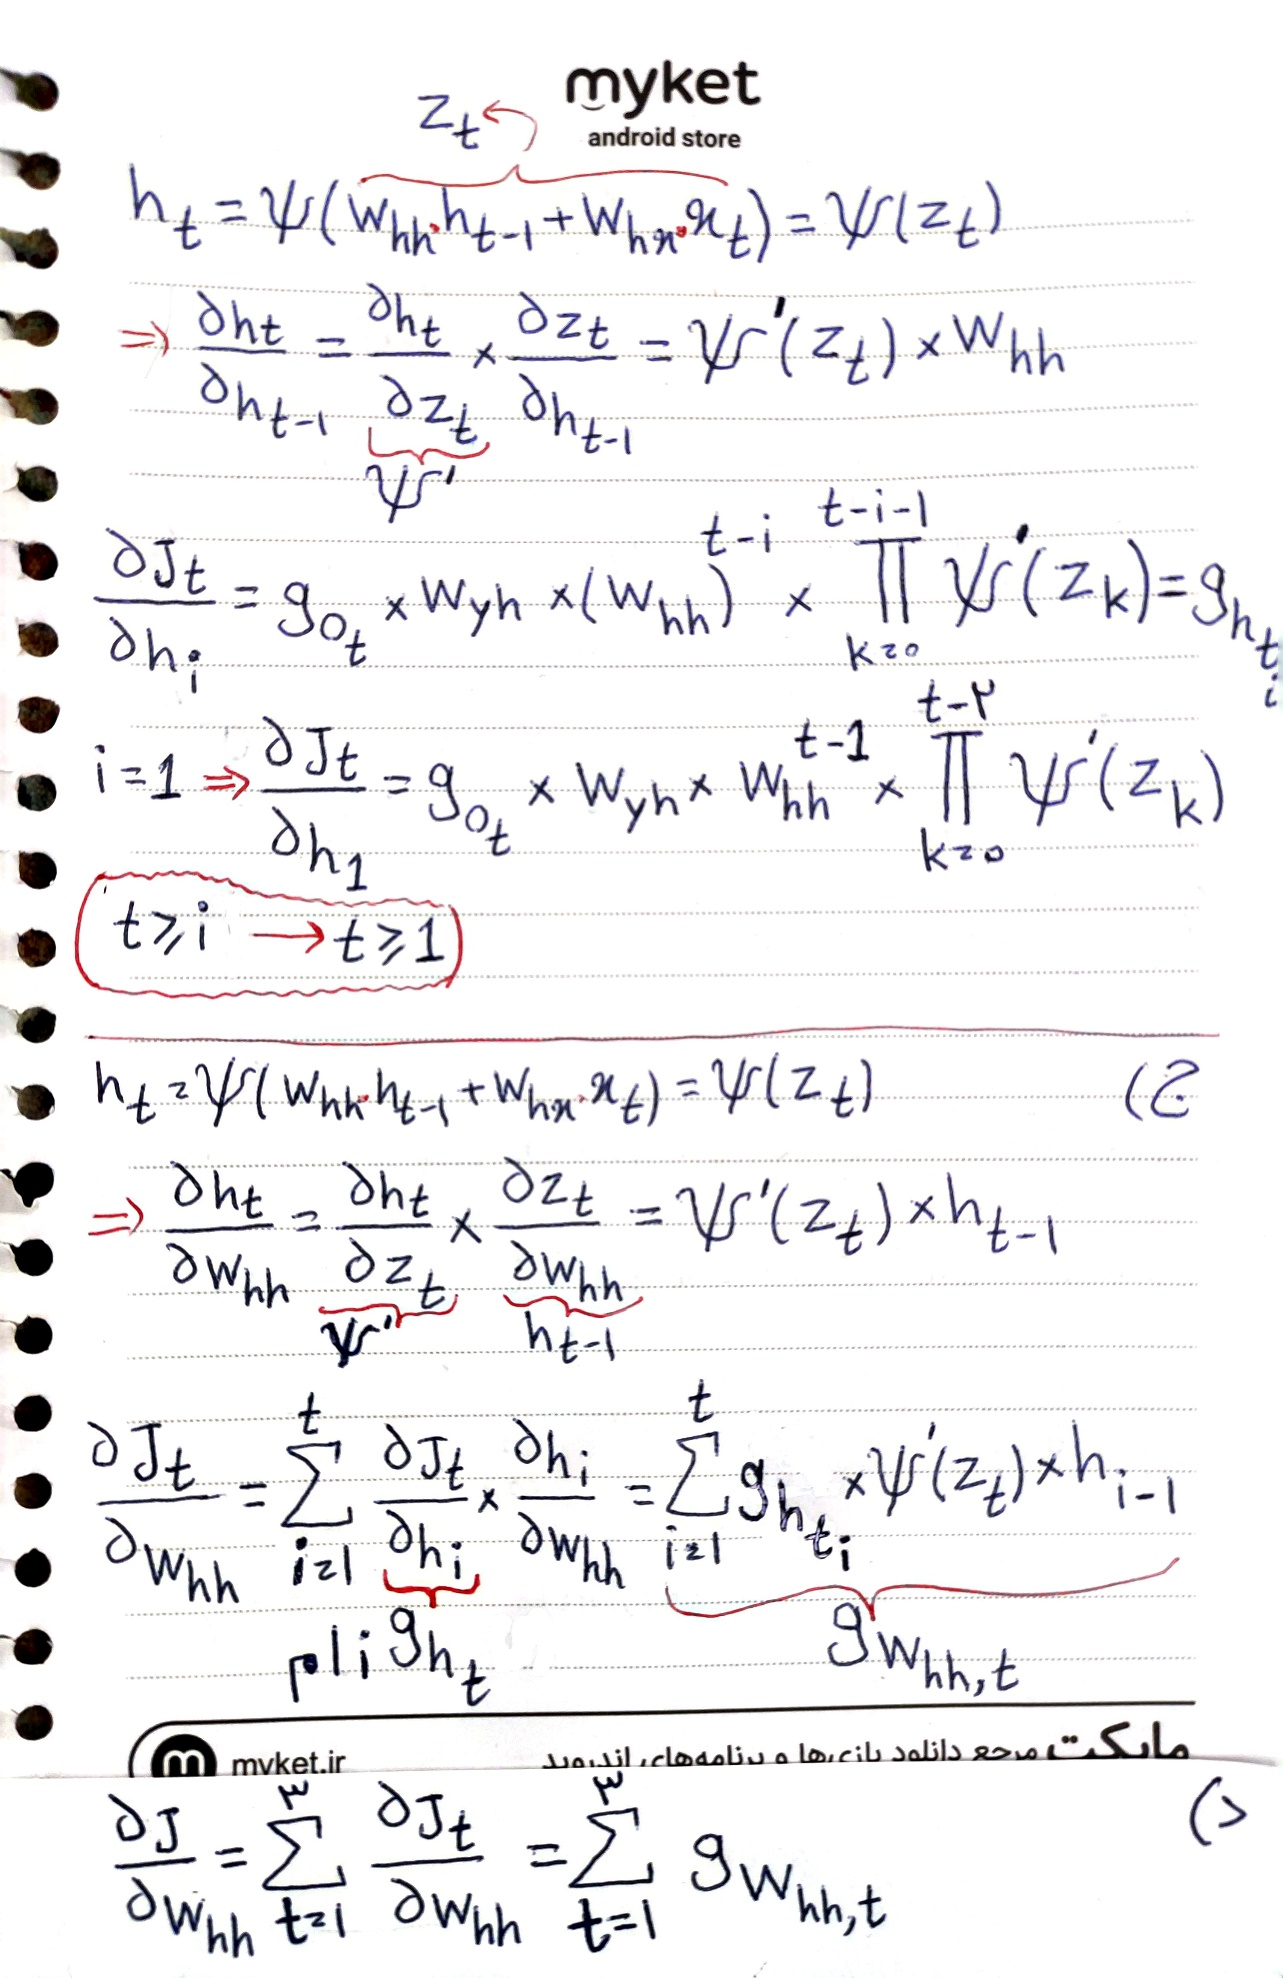 myket
android store
z_t
h_t = ψ(W_hh·h_{t-1} + W_hx·x_t) = ψ(z_t)
⇒ ∂h_t/∂h_{t-1} = ∂h_t/∂z_t × ∂z_t/∂h_{t-1} = ψ'(z_t) × W_hh
ψ'
∂J_t/∂h_i = g_{o_t} × W_yh × (W_hh)^{t-i} × ∏_{k=0}^{t-i-1} ψ'(z_k) = g_{h_{t_i}}
i=1 ⇒ ∂J_t/∂h_1 = g_{o_t} × W_yh × W_hh^{t-1} × ∏_{k=0}^{t-۲} ψ'(z_k)
t ⩾ i → t ⩾ 1
ج)
h_t = ψ(W_hh·h_{t-1} + W_hx·x_t) = ψ(z_t)
⇒ ∂h_t/∂W_hh = ∂h_t/∂z_t × ∂z_t/∂W_hh = ψ'(z_t) × h_{t-1}
ψ' h_{t-1}
∂J_t/∂W_hh = ∑_{i=1}^{t} ∂J_t/∂h_i × ∂h_i/∂W_hh = ∑_{i=1}^{t} g_{h_{t_i}} × ψ'(z_t) × h_{i-1}
g_{h_t} g_{W_hh,t}
myket.ir
مایکت مرجع دانلود بازی‌ها و برنامه‌های اندروید
د)
∂J/∂W_hh = ∑_{t=1}^{۳} ∂J_t/∂W_hh = ∑_{t=1}^{۳} g_{W_hh,t}